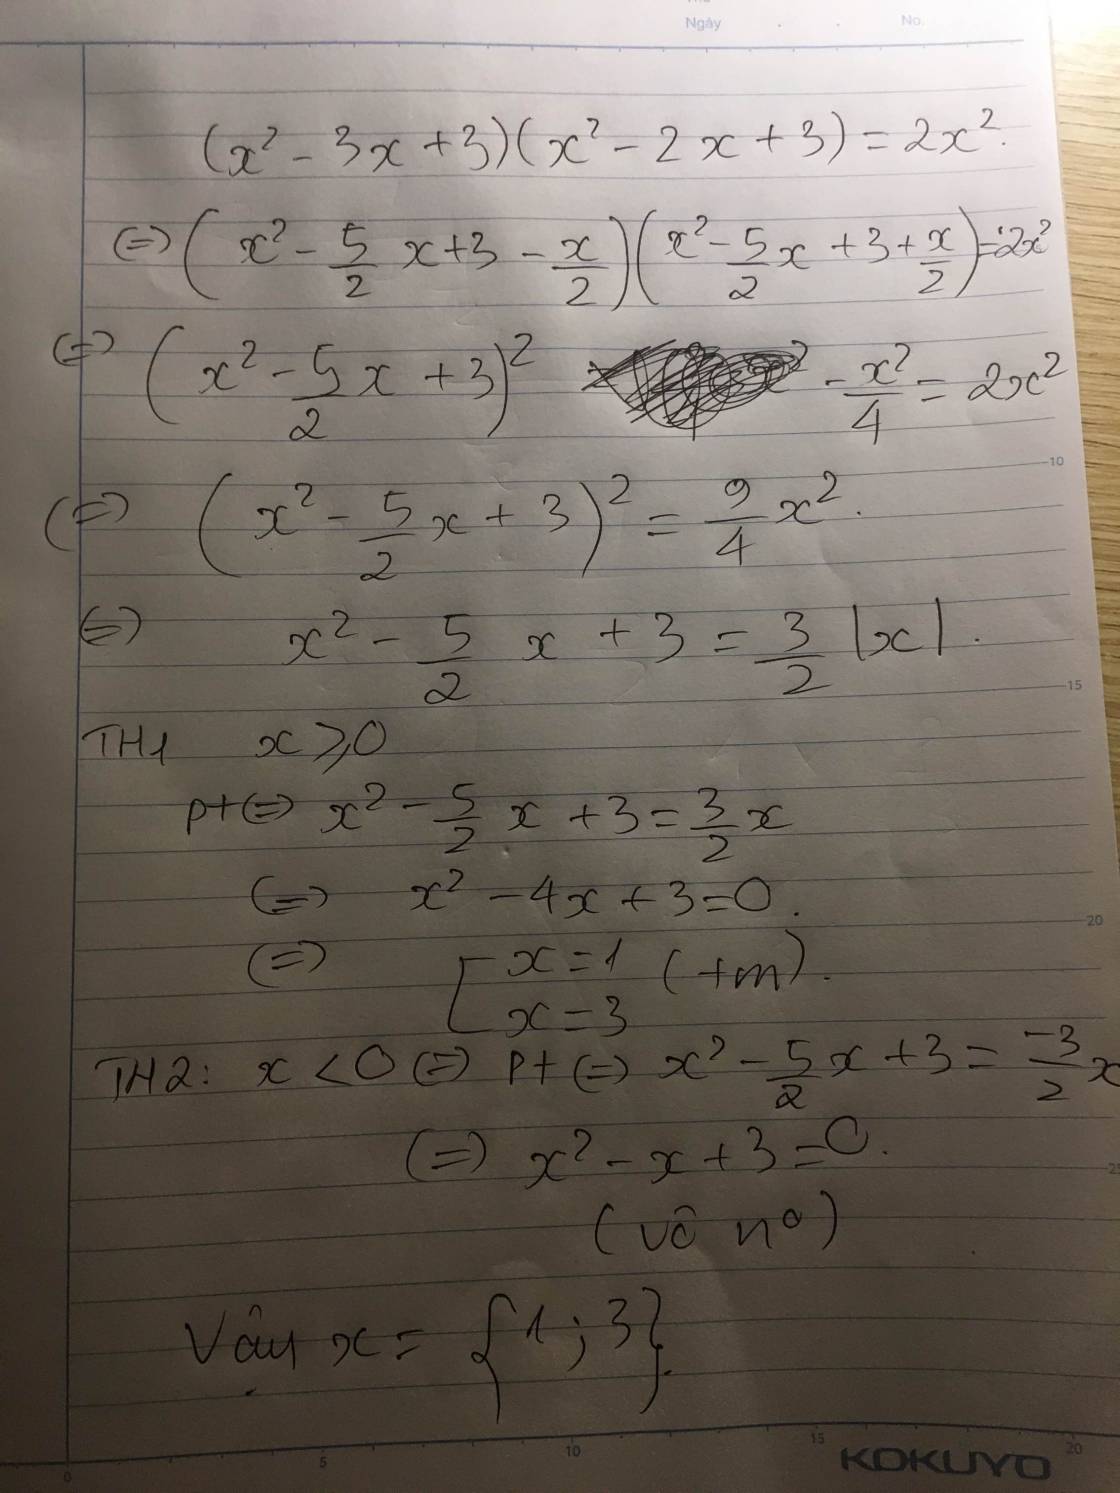 Ngày No.
(x² - 3x + 3)(x² - 2x + 3) = 2x².
(=) (x² - 5/2 x + 3 - x/2)(x² - 5/2 x + 3 + x/2) = 2x²
(=) (x² - 5/2 x + 3)² - x²/4 = 2x²
10
(=) (x² - 5/2 x + 3)² = 9/4 x².
(=) x² - 5/2 x + 3 = 3/2 |x|.
15
TH1 x ⩾ 0
pt (=) x² - 5/2 x + 3 = 3/2 x
(=) x² - 4x + 3 = 0.
20
(=) [ x = 1 (tm).
x = 3
TH2: x < 0 (=) pt (=) x² - 5/2 x + 3 = -3/2 x
(=) x² - x + 3 = 0.
25
(vô n°)
Vậy x = {1; 3}.
0 5 10 15 20
KOKUYO